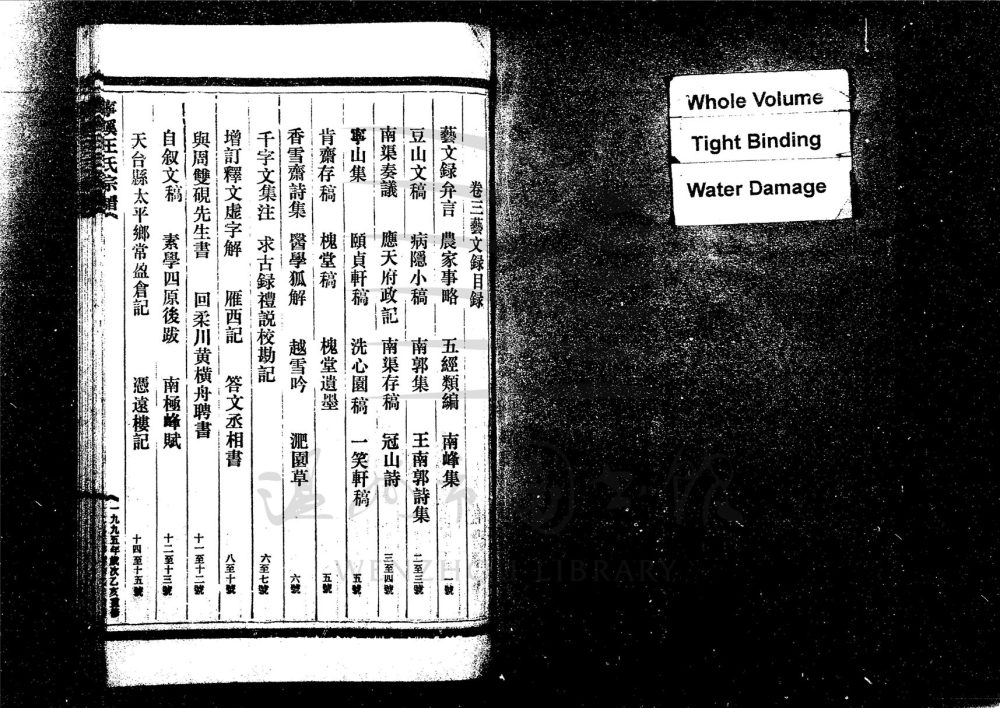 卷三藝文録目録
藝文録弁言 農家事略 五經類編 南峰集 一號
豆山文稿 病隱小稿 南郭集 王南郭詩集 二至三號
南渠奏議 應天府政記 南渠存稿 冠山詩 三至四號
寧山集 頤貞軒稿 洗心園稿 一笑軒稿 五號
肯齋存稿 槐堂稿 槐堂遺墨 五號
香雪齋詩集 醫學狐解 越雪吟 淝園草 六號
千字文集注 求古録禮説校勘記 六至七號
增訂釋文虚字解 雁西記 答文丞相書 八至十號
與周雙硯先生書 回柔川黄橫舟聘書 十一至十二號
自叙文稿 素學四原後跋 南極峰賦 十二至十三號
天台縣太平鄉常盈倉記 憑遠樓記 十四至十五號
寧溪王氏宗譜
一九九五年歲次乙亥重修
Whole Volume
Tight Binding
Water Damage
WENZHOU LIBRARY